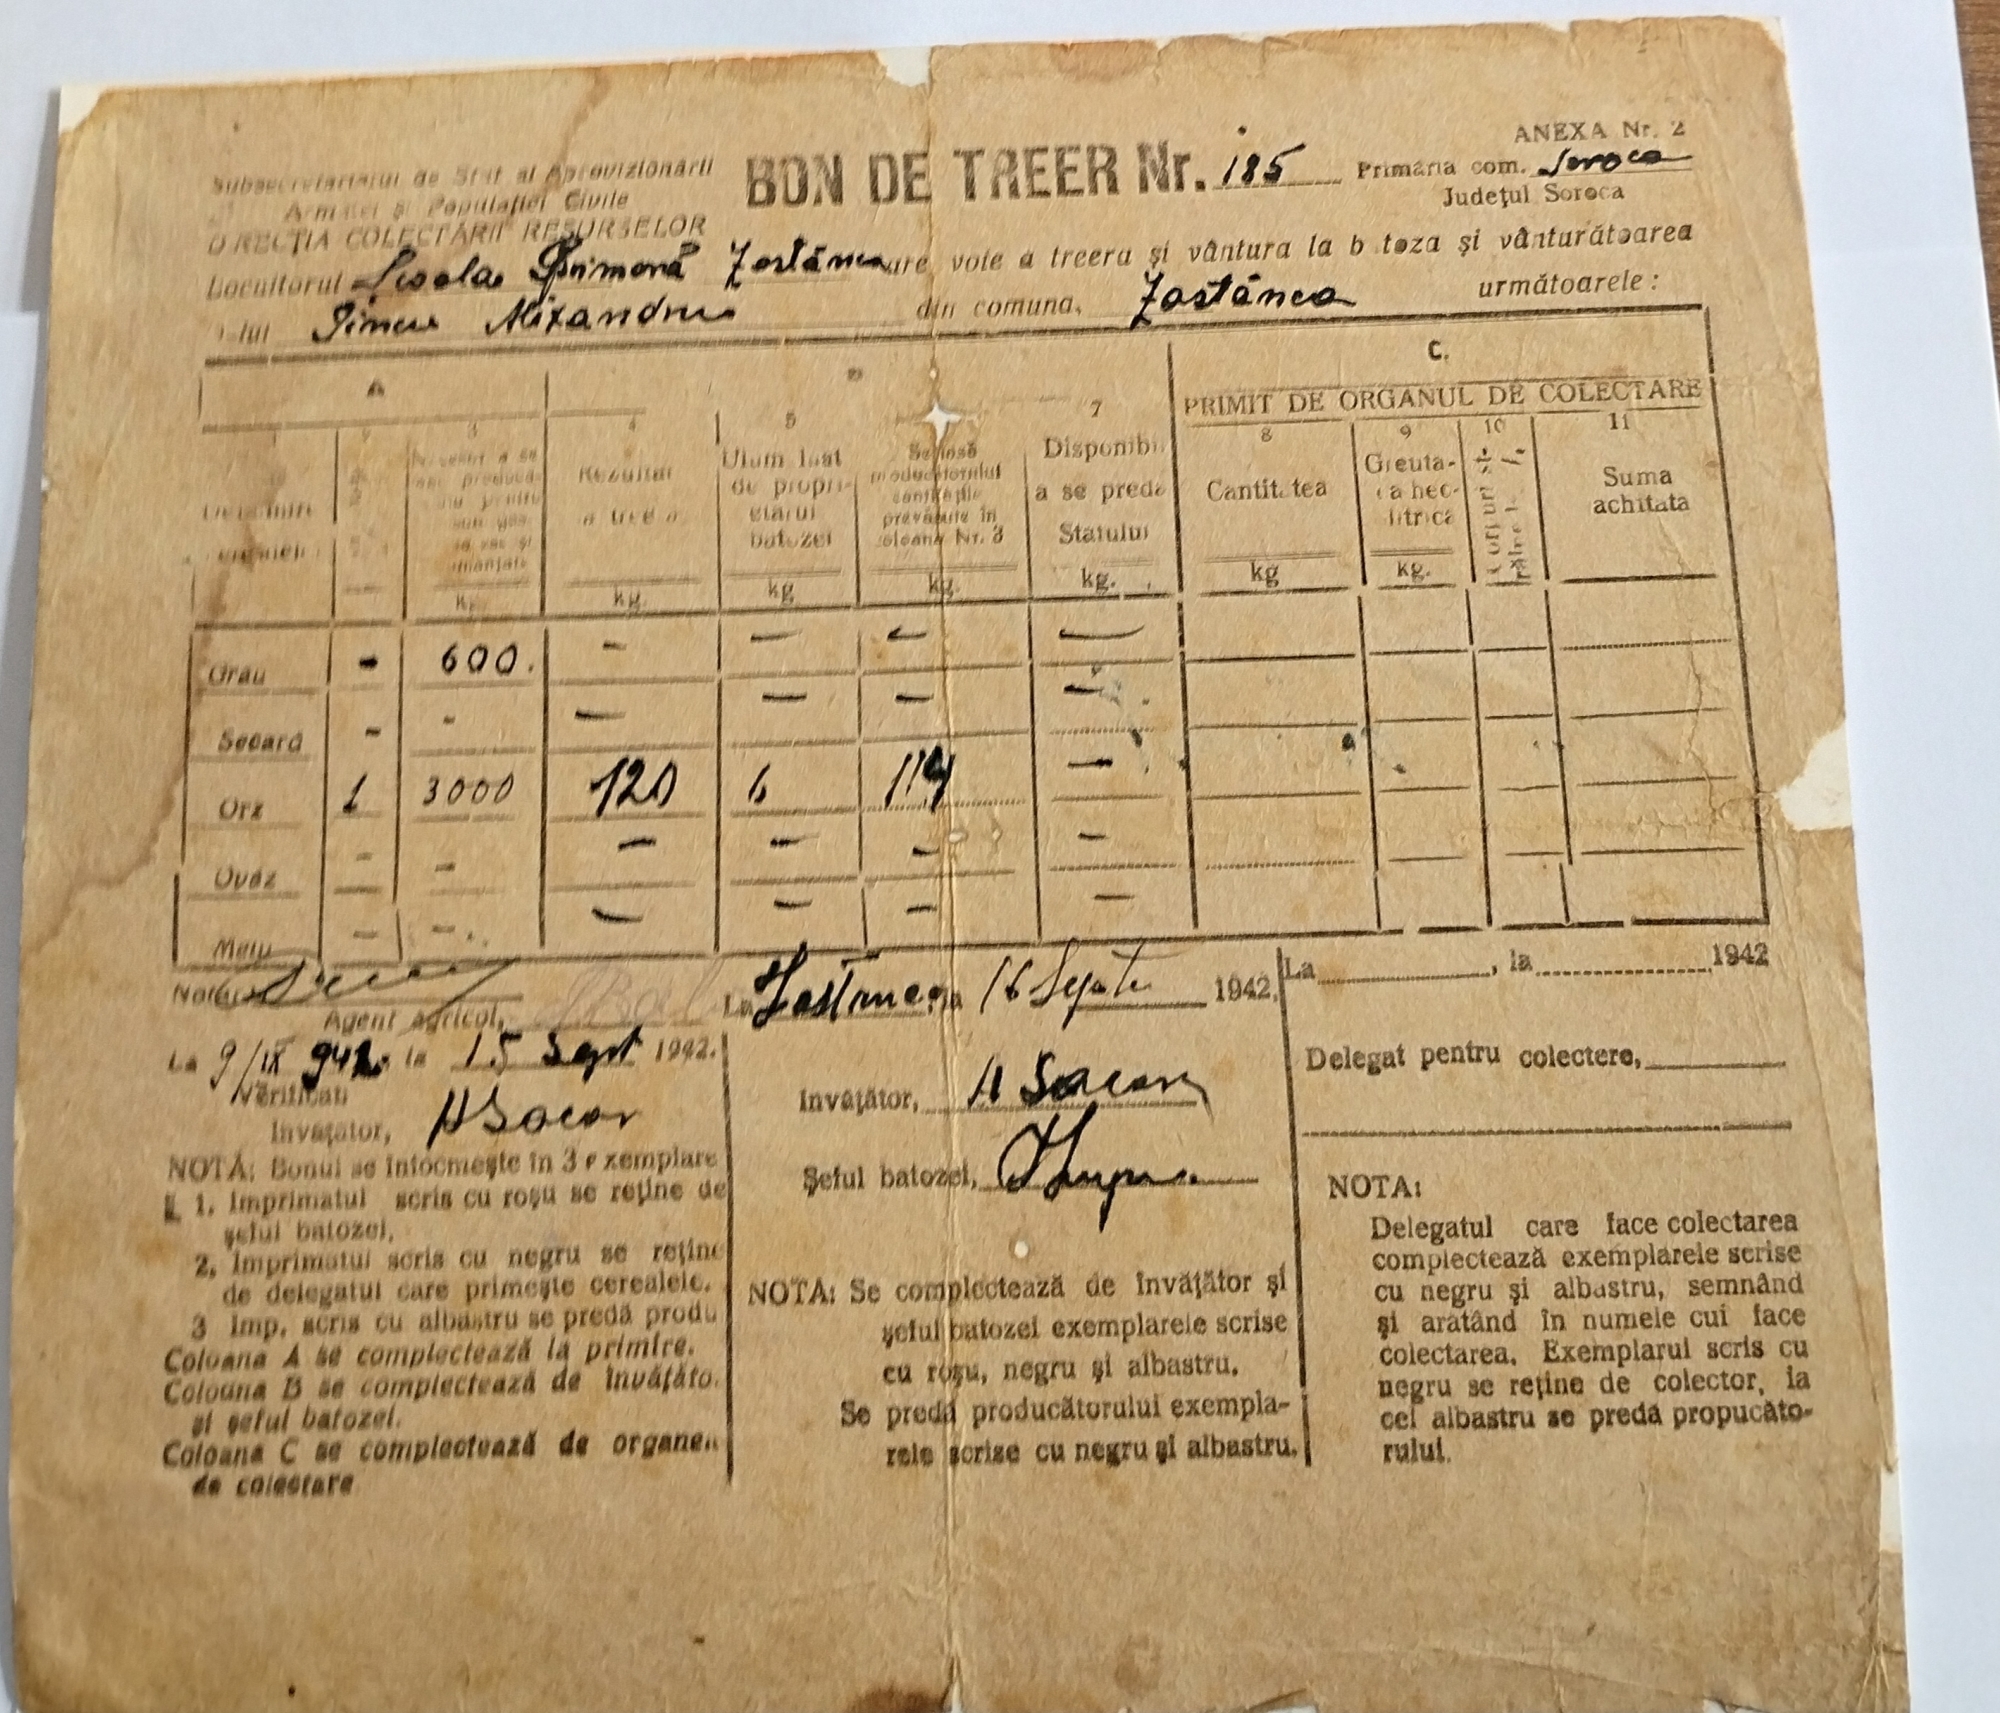 ANEXA Nr. 2
Subsecretariatul de Stat al Aprovizionării
Armatei și Populației Civile
DIRECȚIA COLECTĂRII RESURSELOR
BON DE TREER Nr. 185
Primăria com. Soroca
Județul Soroca
Locuitorul Școala Primară Zastânca are voie a treera și vântura la batoza și vânturătoarea
d-lui Alixandru din comuna, Zastânca următoarele:
A C.
PRIMIT DE ORGANUL DE COLECTARE
3 4 5 7 8 9 10 11
Rezultat a tree
kg.
Uium luat de propri-etarul batozei
kg
Se lasă producătorului cantitățile prevăzute în coloana Nr. 3
kg.
Disponibil a se preda Statului
kg.
Cantitatea
kg
Greuta-tea hec-litrică
kg.
Suma achitata
Grâu - 600. — — — —
Secară - - — — — —
Orz 1 3000 120 6 114 —
Ovăz - - — — — —
Meiu - - — — — —
Notar
Agent agricol,
La 9/IX 942 la 15 Sept 1942.
Verificat
Invățător, A Socar
La Zastânca, la 16 Septe 1942,
Invățător, A Socar
Șeful batozei,
La , la 1942
Delegat pentru colectere,
NOTA: Bonul se întocmește în 3 exemplare
1. Imprimatul scris cu roșu se reține de
șeful batozei,
2. Imprimatul scris cu negru se reține
de delegatul care primește cerealele.
3 Imp. scris cu albastru se predă produ
Coloana A se complectează la primire.
Coloana B se complectează de învățăto.
și șeful batozei.
Coloana C se complectează de organe
de colectare
NOTA: Se complectează de învățător și
șeful batozei exemplarele scrise
cu roșu, negru și albastru.
Se predă producătorului exempla-
rele scrise cu negru și albastru.
NOTA:
Delegatul care face colectarea
complectează exemplarele scrise
cu negru și albastru, semnând
și aratând în numele cui face
colectarea. Exemplarul scris cu
negru se reține de colector, ia
cel albastru se predă propucăto-
rului.